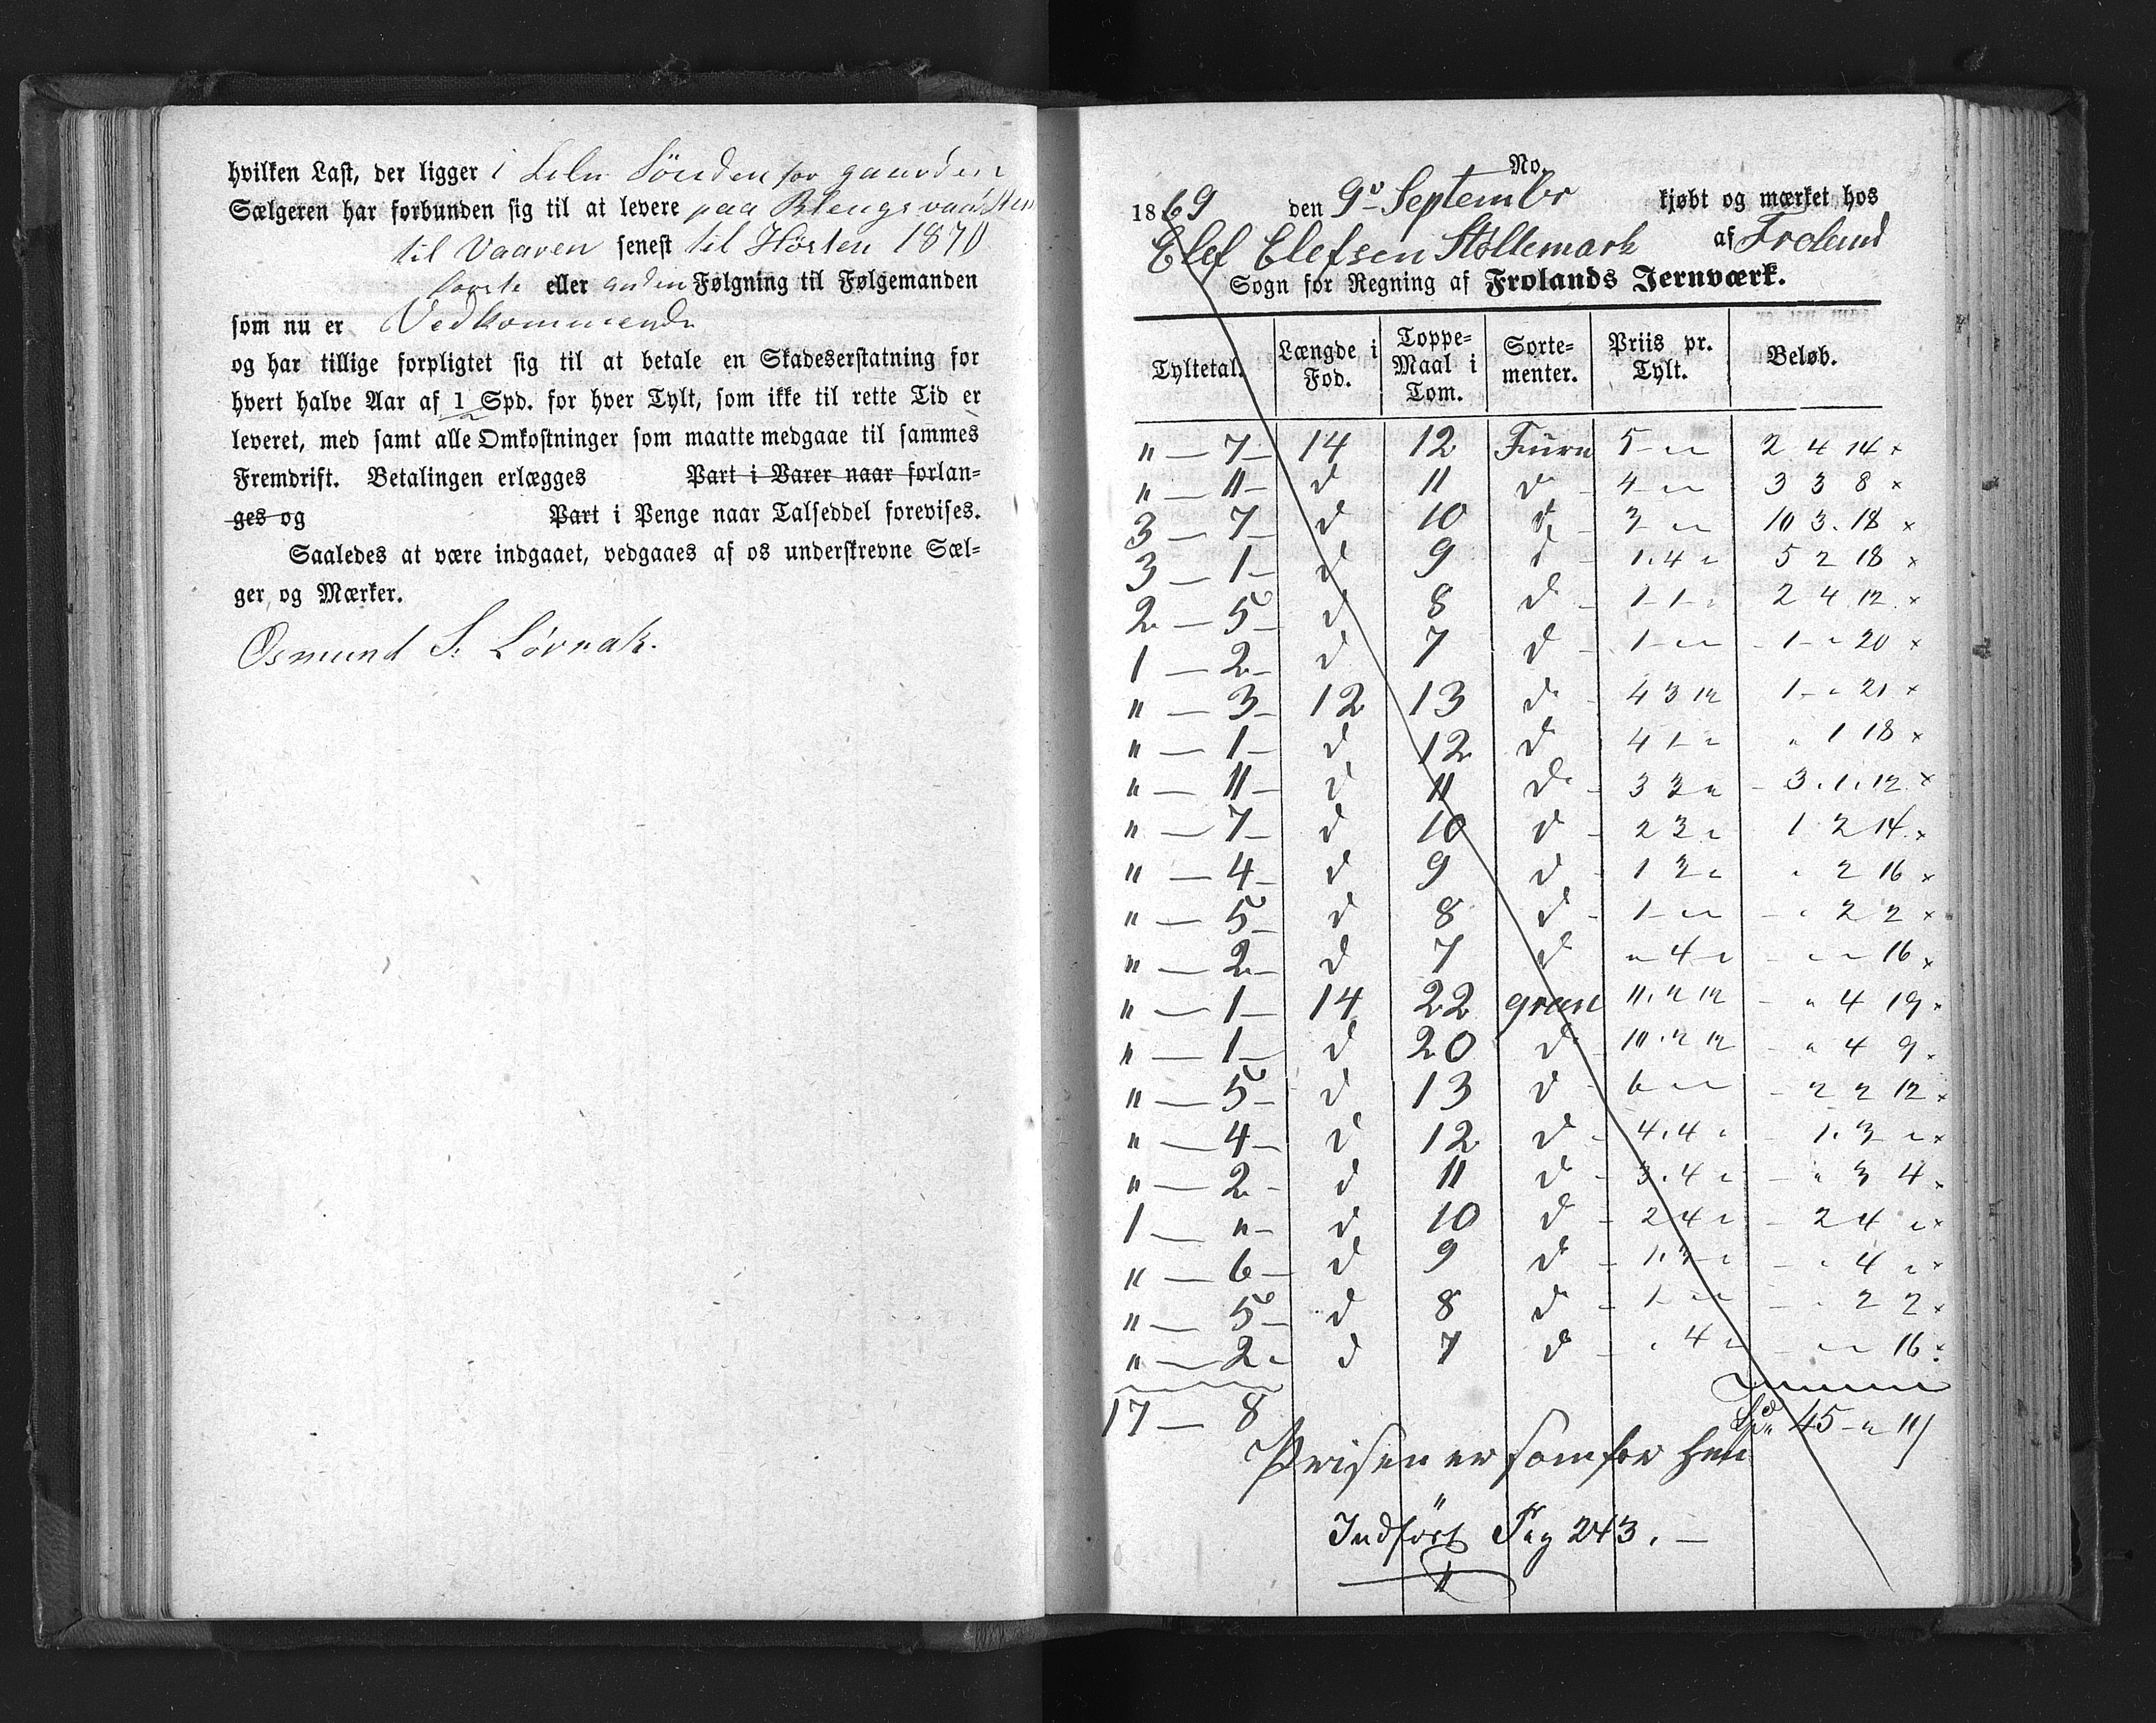 hvilken Last, der ligger i Leln Sönden for gaarden
Sælgeren har forbunden sig til at levere paa
til Vaaren senest til Hösten 1870
første eller anden Følgning til Følgemanden
som nu er Vedkommende
og har tillige forpligtet sig til at betale en Skadeserstatning for
hvert halve Aar af 1 Spd. for hver Tylt, som ikke til rette Tid er
leveret, med samt alle Omkostninger som maatte medgaae til sammes
Fremdrift. Betalingen erlægges Part i Varer naar forlan-
ges og Part i Penge naar Talseddel forevises.
Saaledes at være indgaaet, vedgaaes af os underskrevne Sæl-
ger og Mærker.
Osmund S. Lövrak.
No.
1869 den 9de September kjøbt og mærket hos
Elef Elefsen Stöllemark af Froland
Sogn for Regning af Frolands Jernværk.
Tyltetal. Længde i Fod. Toppe-Maal i Tom. Sorte-menter. Priis pr. Tylt. Beløb.
" — 7 — 14 12 Furu 5 - " " 2 4 14 x
" — 11 — d 11 d - 4 - " " 3 3 8 x
3 — 7 — d 10 d - 3 - " " 10 3 . 18 x
3 — 1 — d 9 d - 1 . 4 " 5 2 18 x
2 — 5 — d 8 d - 1 - 1 - " 2 4 12 x
1 — 2 — d 7 d - 1 - " " - 1 - " 20 x
" — 3 — 12 13 d - 4 3 12 1 - " 21 x
" — 1 — d 12 d 4 1 - " " 1 18 x
" — 11 — d 11 d - 3 3 " - 3 . 1 . 12 x
" — 7 — d 10 d - 2 3 " 1 2 14 x
" — 4 — d 9 d - 1 3 " " 2 16 x
" — 5 — d 8 d - 1 - " " - " 2 2 x
" — 2 — d 7 d " 4 " - " " 16 x
" — 1 — 14 22 gran 11 . 2 12 - " 4 19 x
" — 1 — d 20 d - 10 . 2 12 - " 4 9 x
" — 5 — d 13 d - 6 " " - 2 2 12 x
" — 4 — d 12 d - 4 . 4 " - 1 . 3 " x
" — 2 — d 11 d - 3 . 4 " - " 3 4 x
1 — " — d 10 d - 2 4 " - 2 4 " x
" — 6 — d 9 d - 1 . 3 " - " 4 " x
" — 5 — d 8 d - 1 - " " - " 2 2 x
" — 2 " d 7 d - " 4 " - " " 16 x
Summa
17 — 8 Spd 45 - " 11
Prisen er som for hen
Indfört Pag 243. —